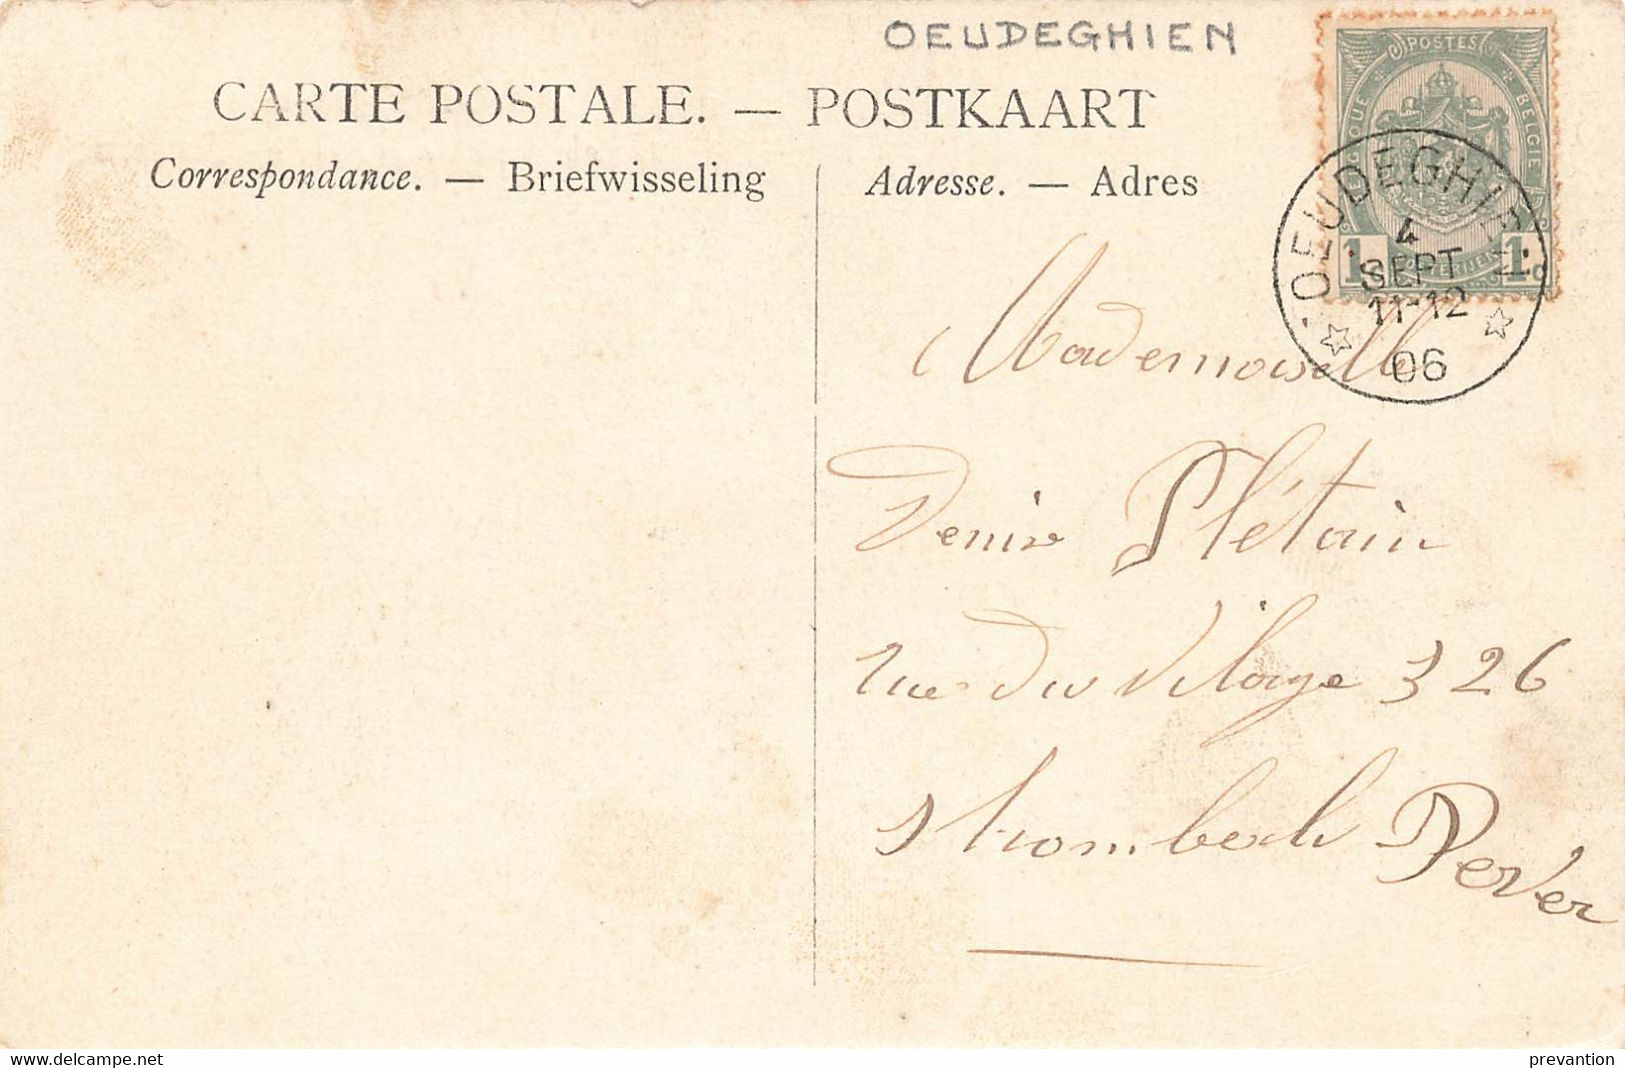 OEUDEGHIEN
CARTE POSTALE. — POSTKAART
Correspondance. — Briefwisseling
Adresse. — Adres
POSTES
BELGIQUE
BELGIE
POSTERIJEN
1c 1c
OEUDEGHIEN
4
SEPT
11-12
06
Mademoiselle
Denise Plétain
rue du Vilage 326
Strombeek Bever
delcampe.net
prevantion